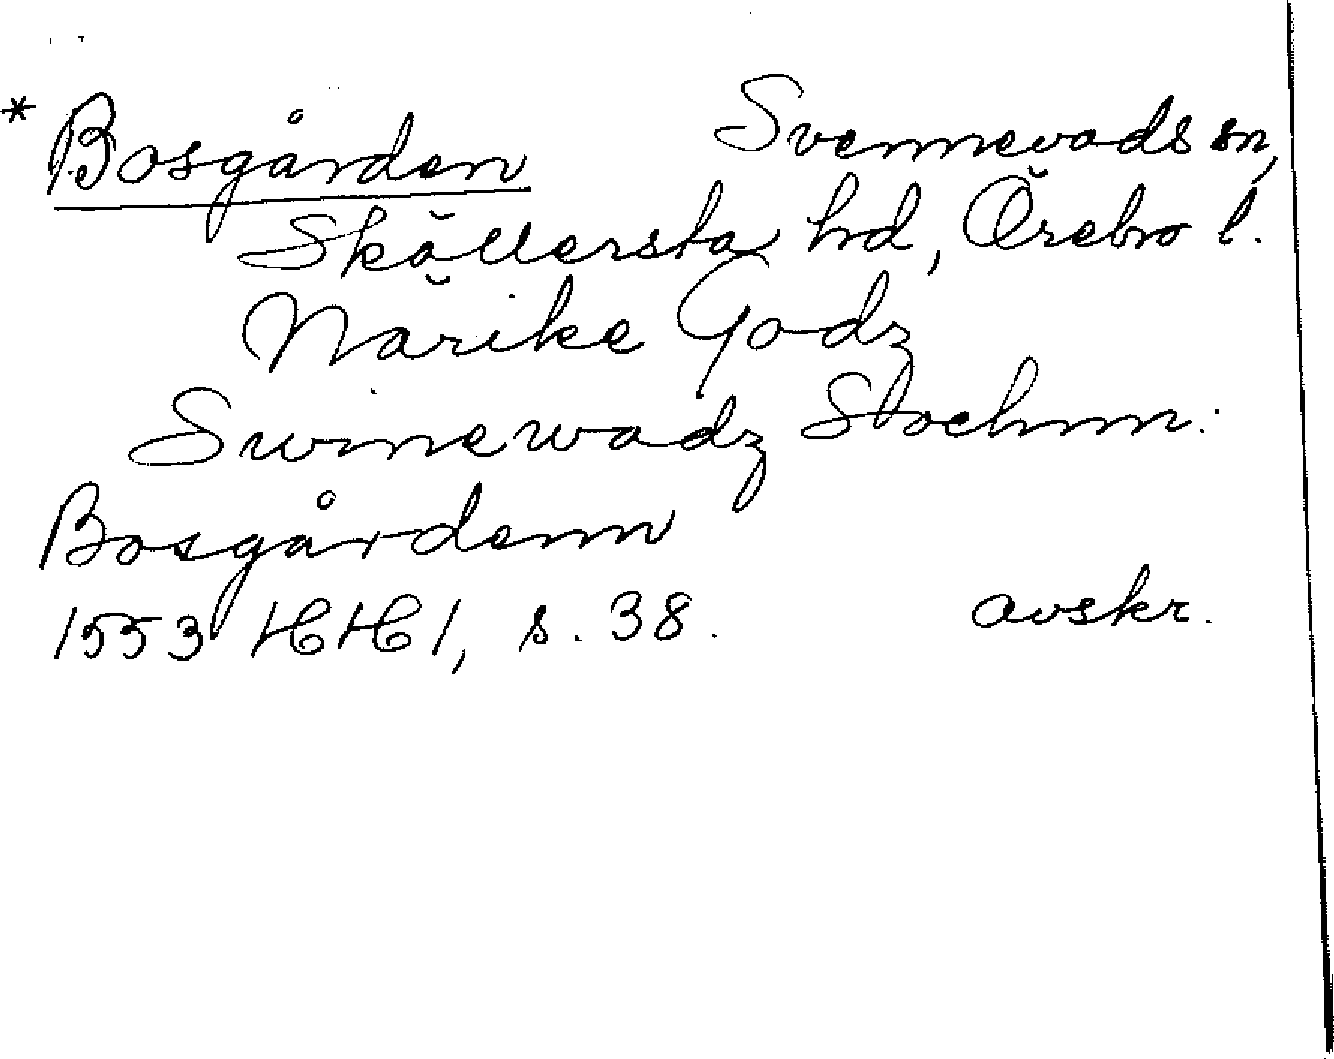 * Bosgården Svennevads sn,
Sköllersta hd, Örebro l.
Närike Godz
Swinewadz Sochnn:
Bosgårdenn
1553 HH 1, s. 38. avskr.